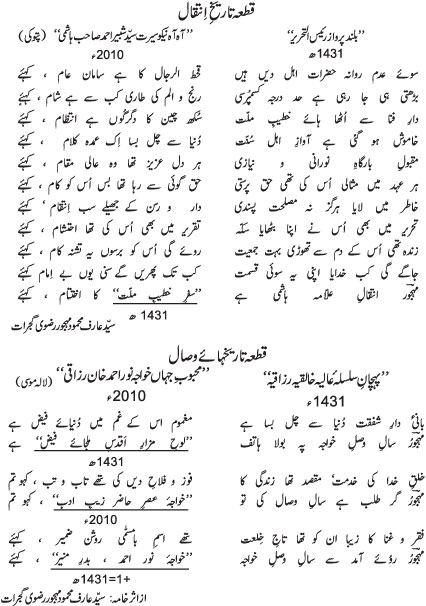 قطعہ تاریخِ انتقال
”بلند پرواز رئیس التحریر“ ”آہ آہ نیکو سیرت سیّد شبیر احمد صاحب ہاشمی“ (پتوکی)
1431ھ 2010ء
سوئے عدم روانہ حضرات اہل دیں ہیں قحط الرجال کا ہے سامان عام ، کہئے
بڑھتی ہی جا رہی ہے حد درجہ کسمپرسی رنج و الم کی طاری کب سے ہے شام ، کہئے
دارِ فنا سے اُٹھا ہائے خطیبِ ملّت سُکھ چین کا دِگرگوں ہے انتظام ، کہئے
خاموش ہو گئی ہے آوازِ اہلِ سُنّت دُنیا سے چل بسا اِک عمدہ کلام ، کہئے
مقبولِ بارگاہِ نورانی و نیازی ہر دل عزیز تھا وہ عالی مقام ، کہئے
ہر عہد میں مثالی اُس کی تھی حق پرستی حق گوئی سے رہا تھا بس اُس کو کام ، کہئے
خاطر میں لایا ہرگز نہ مصلحت پسندی دار و رسن کے جھیلے سب اِنتقام ، کہئے
تحریر میں بھی اُس نے اپنا بٹھایا سکّہ تقریر میں بھی اُس کی تھا احتشام ، کہئے
زندہ تھی اُس کے دم سے تھوڑی بہت جمعیت روئے گی اُس کو برسوں یہ تشنہ کام ، کہئے
جاگے گی کب خدایا اپنی یہ سوئی قسمت کب تک پھریں گے سنی یوں بے امام کہئے
مہجورؔ انتقالِ علاّمہ ہاشمی ہے ”سفرِ خطیبِ ملّت“ کا اختتام ، کہئے
1431ھ
سیّد عارف محمود مہجور رضوی گجرات
قطعہ تاریخہائے وصال
”پہچانِ سلسلۂ عالیہ خالقیہ رزاقیہ“ ”محبوبِ جہاں خواجہ نور احمد خان رزاقی“ (لالہ موسیٰ)
1431ء 2010ء
بانیٔ دارِ شفقت دُنیا سے چل بسا ہے مغموم اس کے غم میں دُنیائے فیض ہے
مہجورؔ سالِ وصلِ خواجہ یہ بولا ہاتف ”لوحِ مزارِ اقدس ملجائے فیض“ ہے
1431ھ
خلقِ خدا کی خدمت مقصد تھا زندگی کا فوز و فلاحِ دیں کی تھے تاب و تب ، کہو تم
مہجورؔ گر طلب ہے سالِ وصال کی تو ”خواجۂ عصرِ حاضر زیبِ ادب“ ، کہو تم
2010ء
فقر و غنا کا زیبا ان کو تھا تاجِ خلعت تھے اسمِ بامسمّٰی روشن ضمیر ، کہئے
مہجورؔ روئے آمد سے سالِ وصلِ خواجہ ”خواجۂ نور احمد ، بدرِ منیر“ ، کہئے
1431=1+ھ
از اثرِ خامہ: سیّد عارف محمود مہجور رضوی گجرات